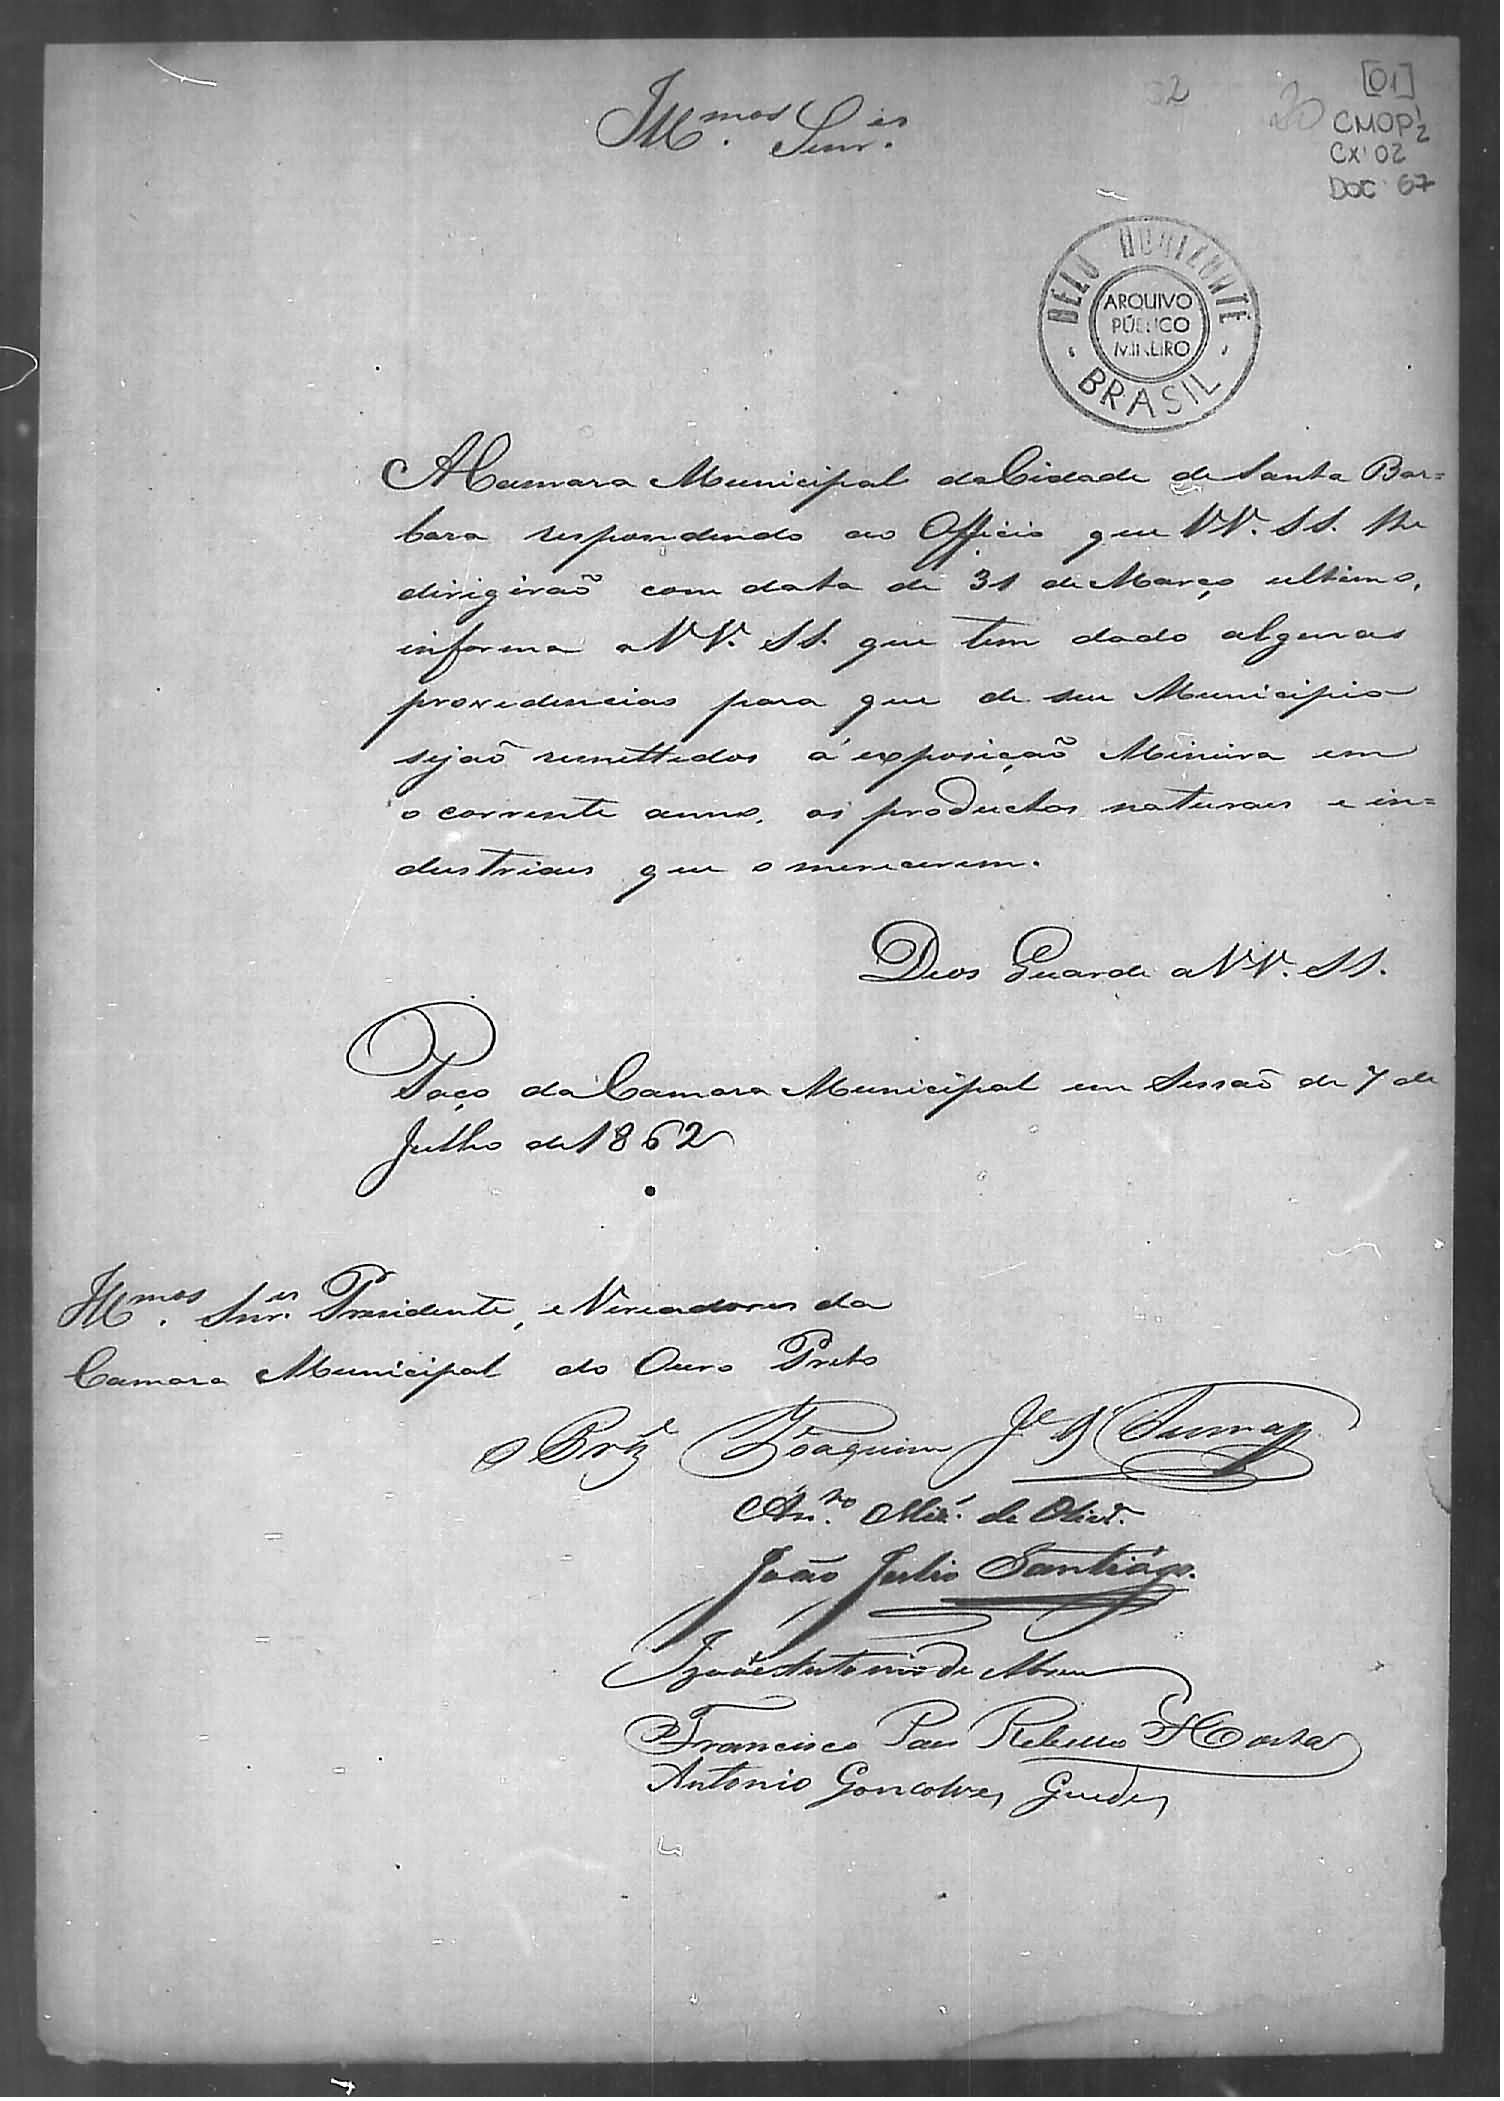 Illmos. Senres.
52
20
[01]
CMOP 1/2
CX 02
DOC 67
BELO HORIZONTE
ARQUIVO
PÚBLICO
MINEIRO
BRASIL
A Camara Municipal da Cidade de Santa Bar=
bara respondendo ao Officio que VV. SS. lhe
dirigirão com data de 31 de Março ultimo,
informa a VV. SS. que tem dado algumas
providencias para que de seu Municipio
sejão remettidos á exposição Mineira em
o corrente anno, os productos naturaes e in=
dustriaes que o merecerem.
Deos Guarde a VV. SS.
Paço da Camara Municipal em Sessão de 7 de
Julho de 1862
Illmos. Snres. Presidente, e Vereadores da
Camara Municipal do Ouro Preto
Joaquim Je
Anto. de Olivra.
João Julio Santiágo.
Antonio de Abreu
Francisco Paes Rebello Horta
Antonio Goncolves Guedes